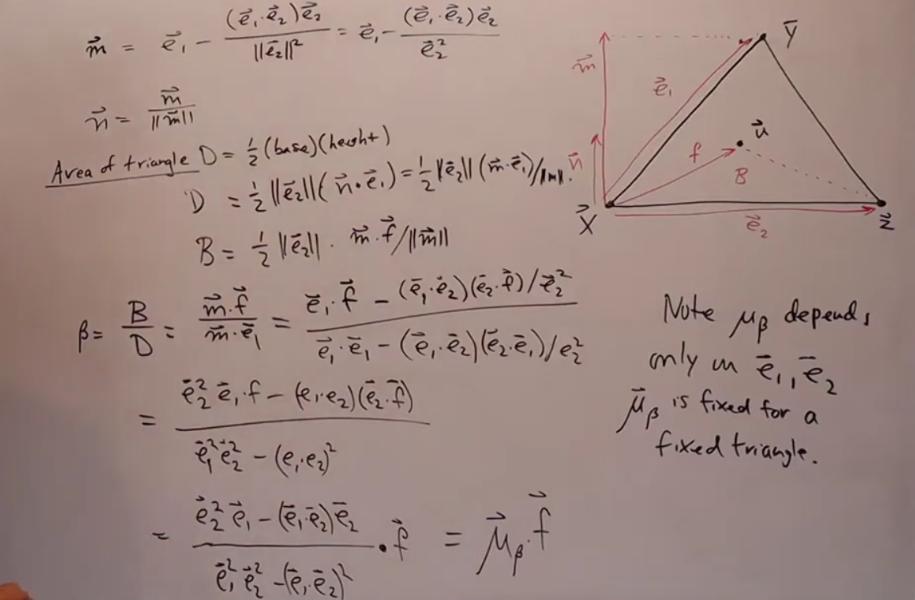 m⃗ = e⃗₁ - (e⃗₁·e⃗₂)e⃗₂ / ||e⃗₂||² = e⃗₁ - (e⃗₁·e⃗₂)e⃗₂ / e⃗₂²
n⃗ = m⃗ / ||m⃗||
Area of triangle D = ½ (base)(height)
D = ½ ||e⃗₂|| (n⃗·e⃗₁) = ½ ||e⃗₂|| (m⃗·e⃗₁)/||m||.
B = ½ ||e⃗₂|| · m⃗·f⃗ / ||m⃗||
β = B/D = m⃗·f⃗ / m⃗·e⃗₁ = (e⃗₁·f⃗ - (e⃗₁·e⃗₂)(e⃗₂·f⃗)/e⃗₂²) / (e⃗₁·e⃗₁ - (e⃗₁·e⃗₂)(e⃗₂·e⃗₁)/e₂²)
= (e⃗₂² e⃗₁·f - (e₁·e₂)(e⃗₂·f⃗)) / (e⃗₁² e⃗₂² - (e₁·e₂)²)
= (e⃗₂² e⃗₁ - (e⃗₁·e⃗₂)e⃗₂) / (e⃗₁² e⃗₂² - (e⃗₁·e⃗₂)²) · f⃗ = μ⃗β·f⃗
y⃗
m⃗
e⃗₁
u⃗
n⃗
f
B
x⃗
e⃗₂
z⃗
Note μβ depends
only on e⃗₁, e⃗₂
μ⃗β is fixed for a
fixed triangle.